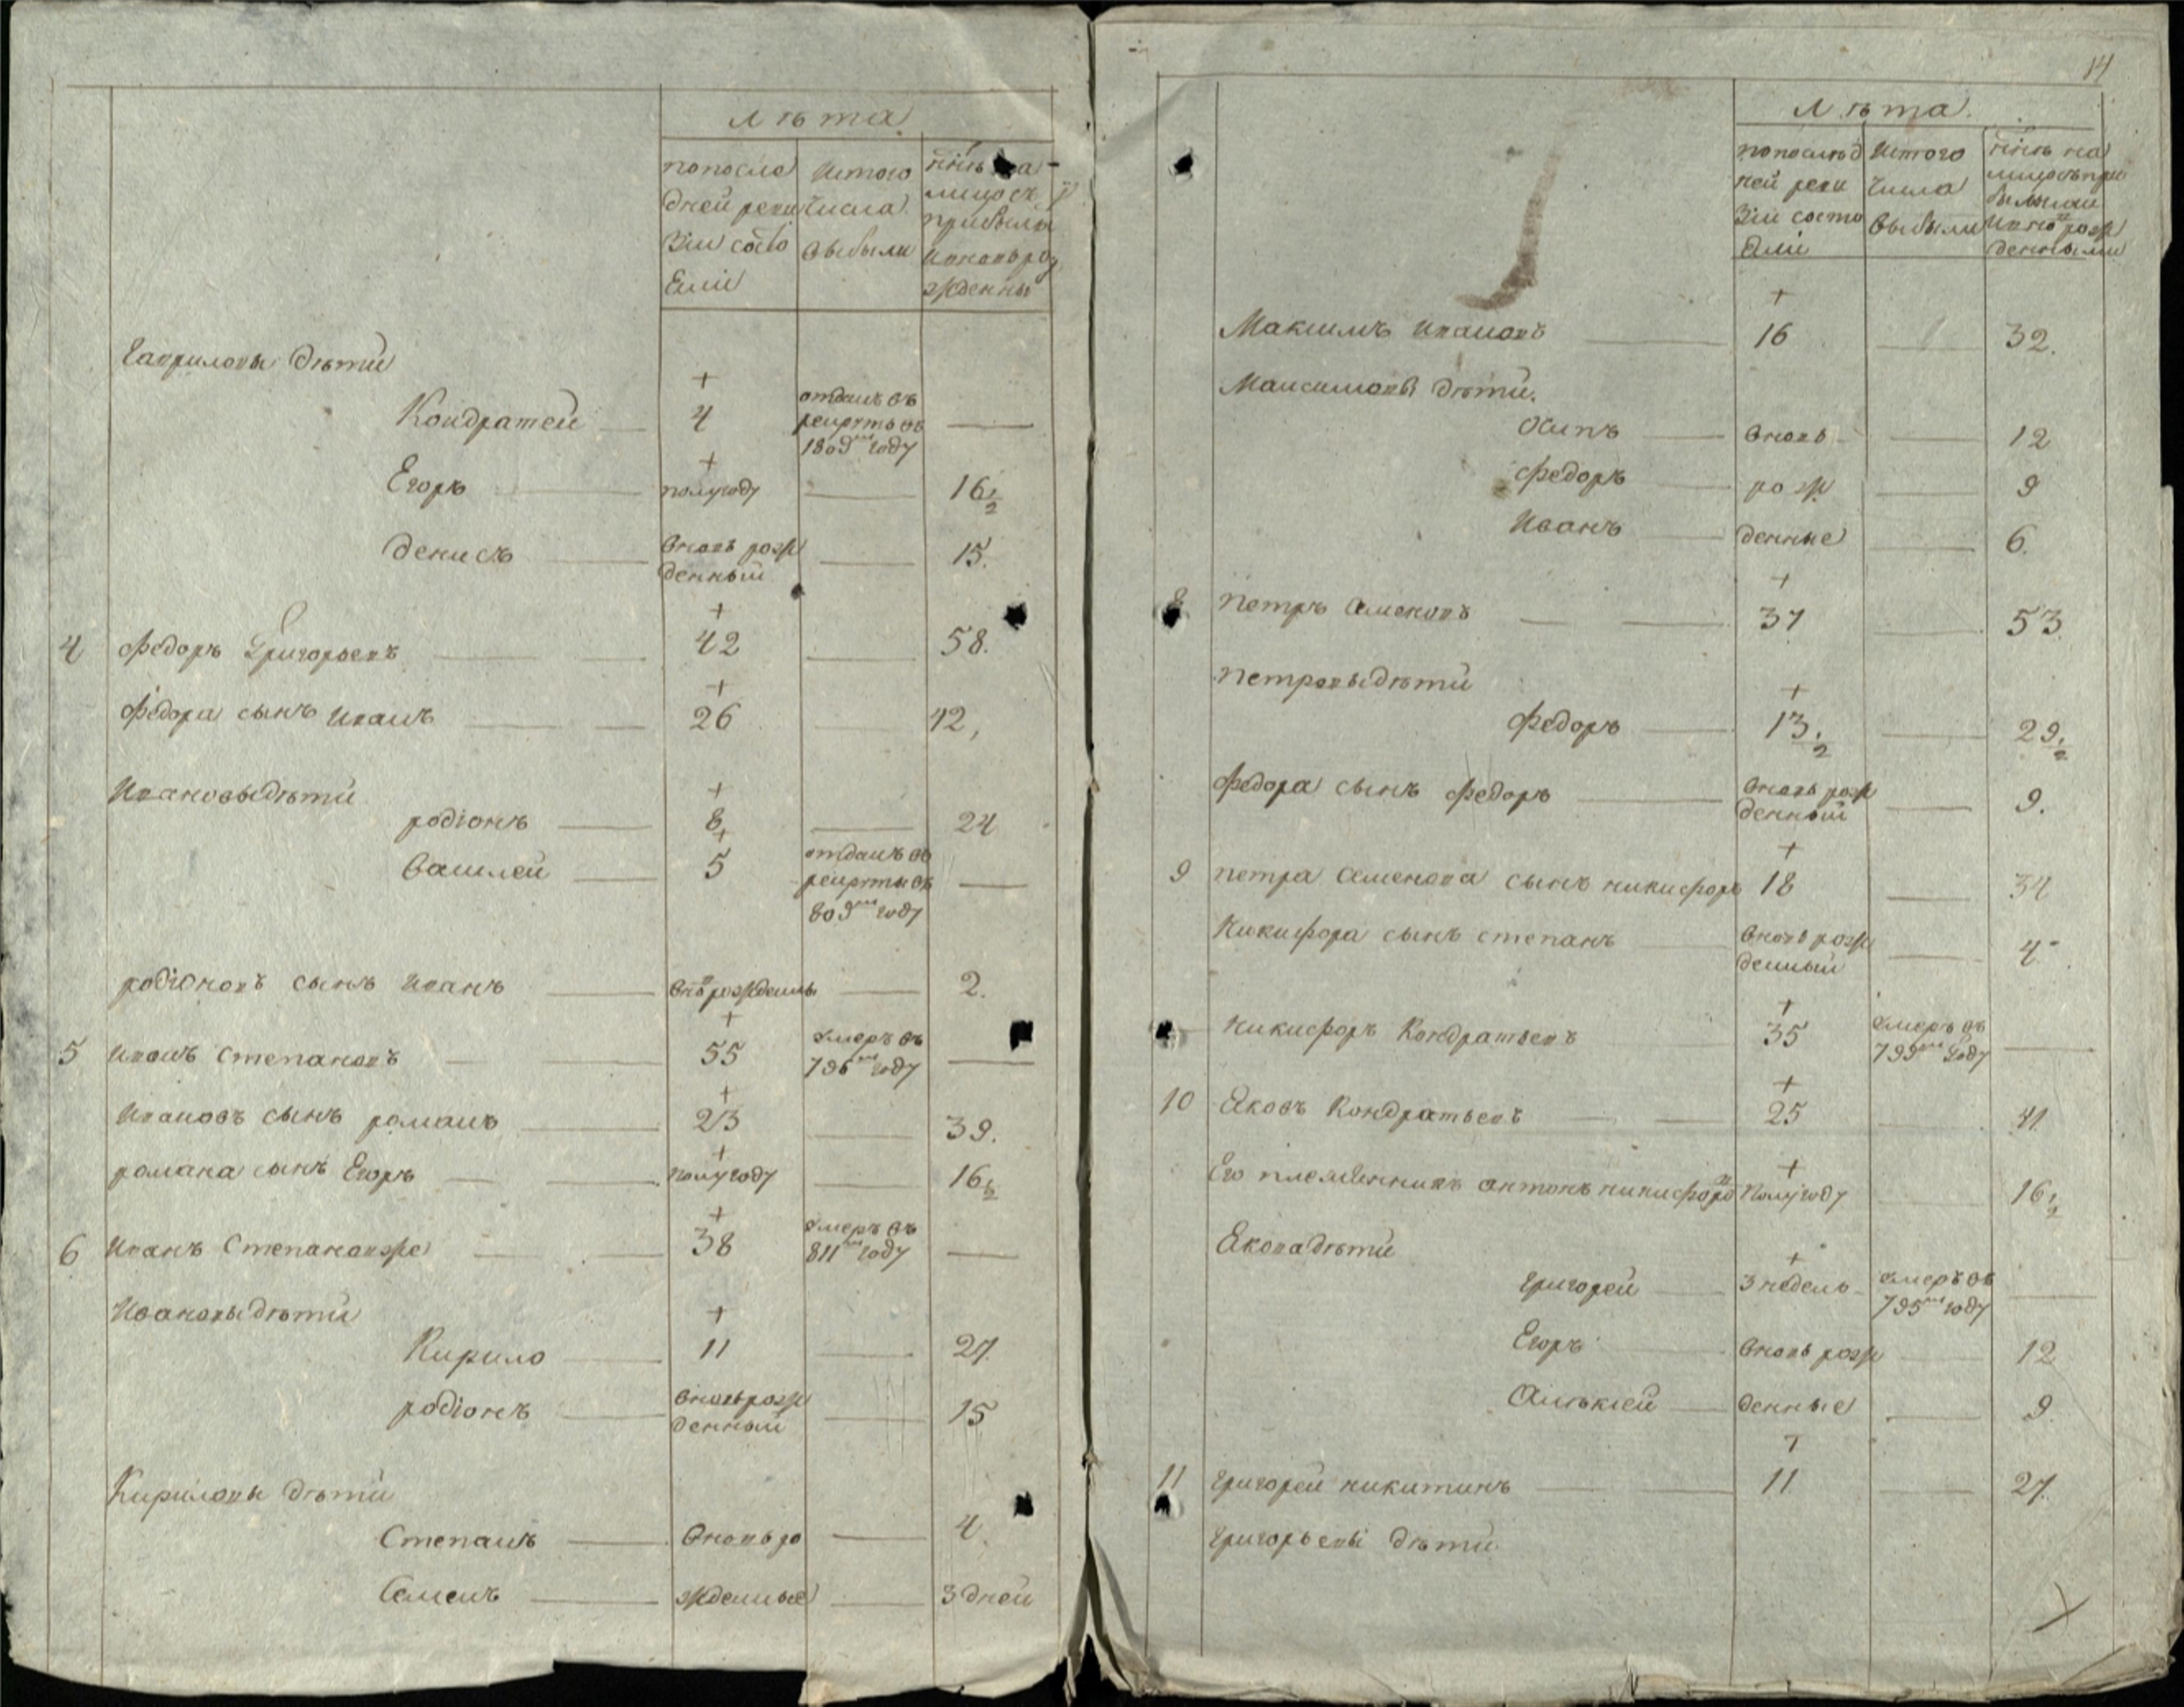 лѣта
попосле
дней реви
зіи состо
яли
Изтого
числа
выбыли
нынѣ на
лицо съ
прибылы
ивновьро
жденны
Гавриловы дѣти
Кондратей 4 отданъ въ
рекруты въ
1809м году
Егоръ полугоду 16 1/2
Денисъ вновь рож
денный 15.
4 Федоръ Григорьевъ 42 58.
Федора сынъ Иванъ 26 42,
Ивановы дѣти
родіонъ 8 24
Василей 5 отданъ въ
рекруты въ
809м году
родіоновъ сынъ Иванъ вновь рожденны 2.
5 Иванъ Степановъ 55 умеръ въ
796м году
Ивановъ сынъ романъ 23 39.
романа сынъ Егоръ полугоду 16 1/2
6 Иванъ Степановже 38 умеръ въ
811м году
Ивановы дѣти
Кирило 11 27.
родіонъ вновь рож
денный 15
Кириловы дѣти
Степанъ вновь ро 4.
Семенъ жденные 3 дней
14
лѣта.
попослѣд
ней реви
зіи состо
яли
Изтого
числа
выбыли
нынѣ на
лицо съ при
былыми
ивновь рож
денными
Максимъ Ивановъ 16 32.
Максимовы дѣти.
Осипъ вновь 12
Федоръ рож 9
Иванъ денные 6.
8 Петръ Семеновъ 37 53
Петровы дѣти
Федоръ 13 1/2 29 1/2
Федора сынъ Федоръ вновь рож
денный 9.
9 Петра Семенова сынъ никифоръ 18 34
Никифора сынъ степанъ вновь рож
денный 4
Никифоръ Кондратьевъ 35 умеръ въ
799м году
10 Яковъ Кондратьевъ 25 41
Его племянникъ антонъ никифоровъ полугоду 16 1/2
Якова дѣти
григорей 3 недель умеръ въ
795м году
Егоръ вновь рож 12
Алѣксей денные 9.
11 григорей никитинъ 11 27.
григорьевы дѣти